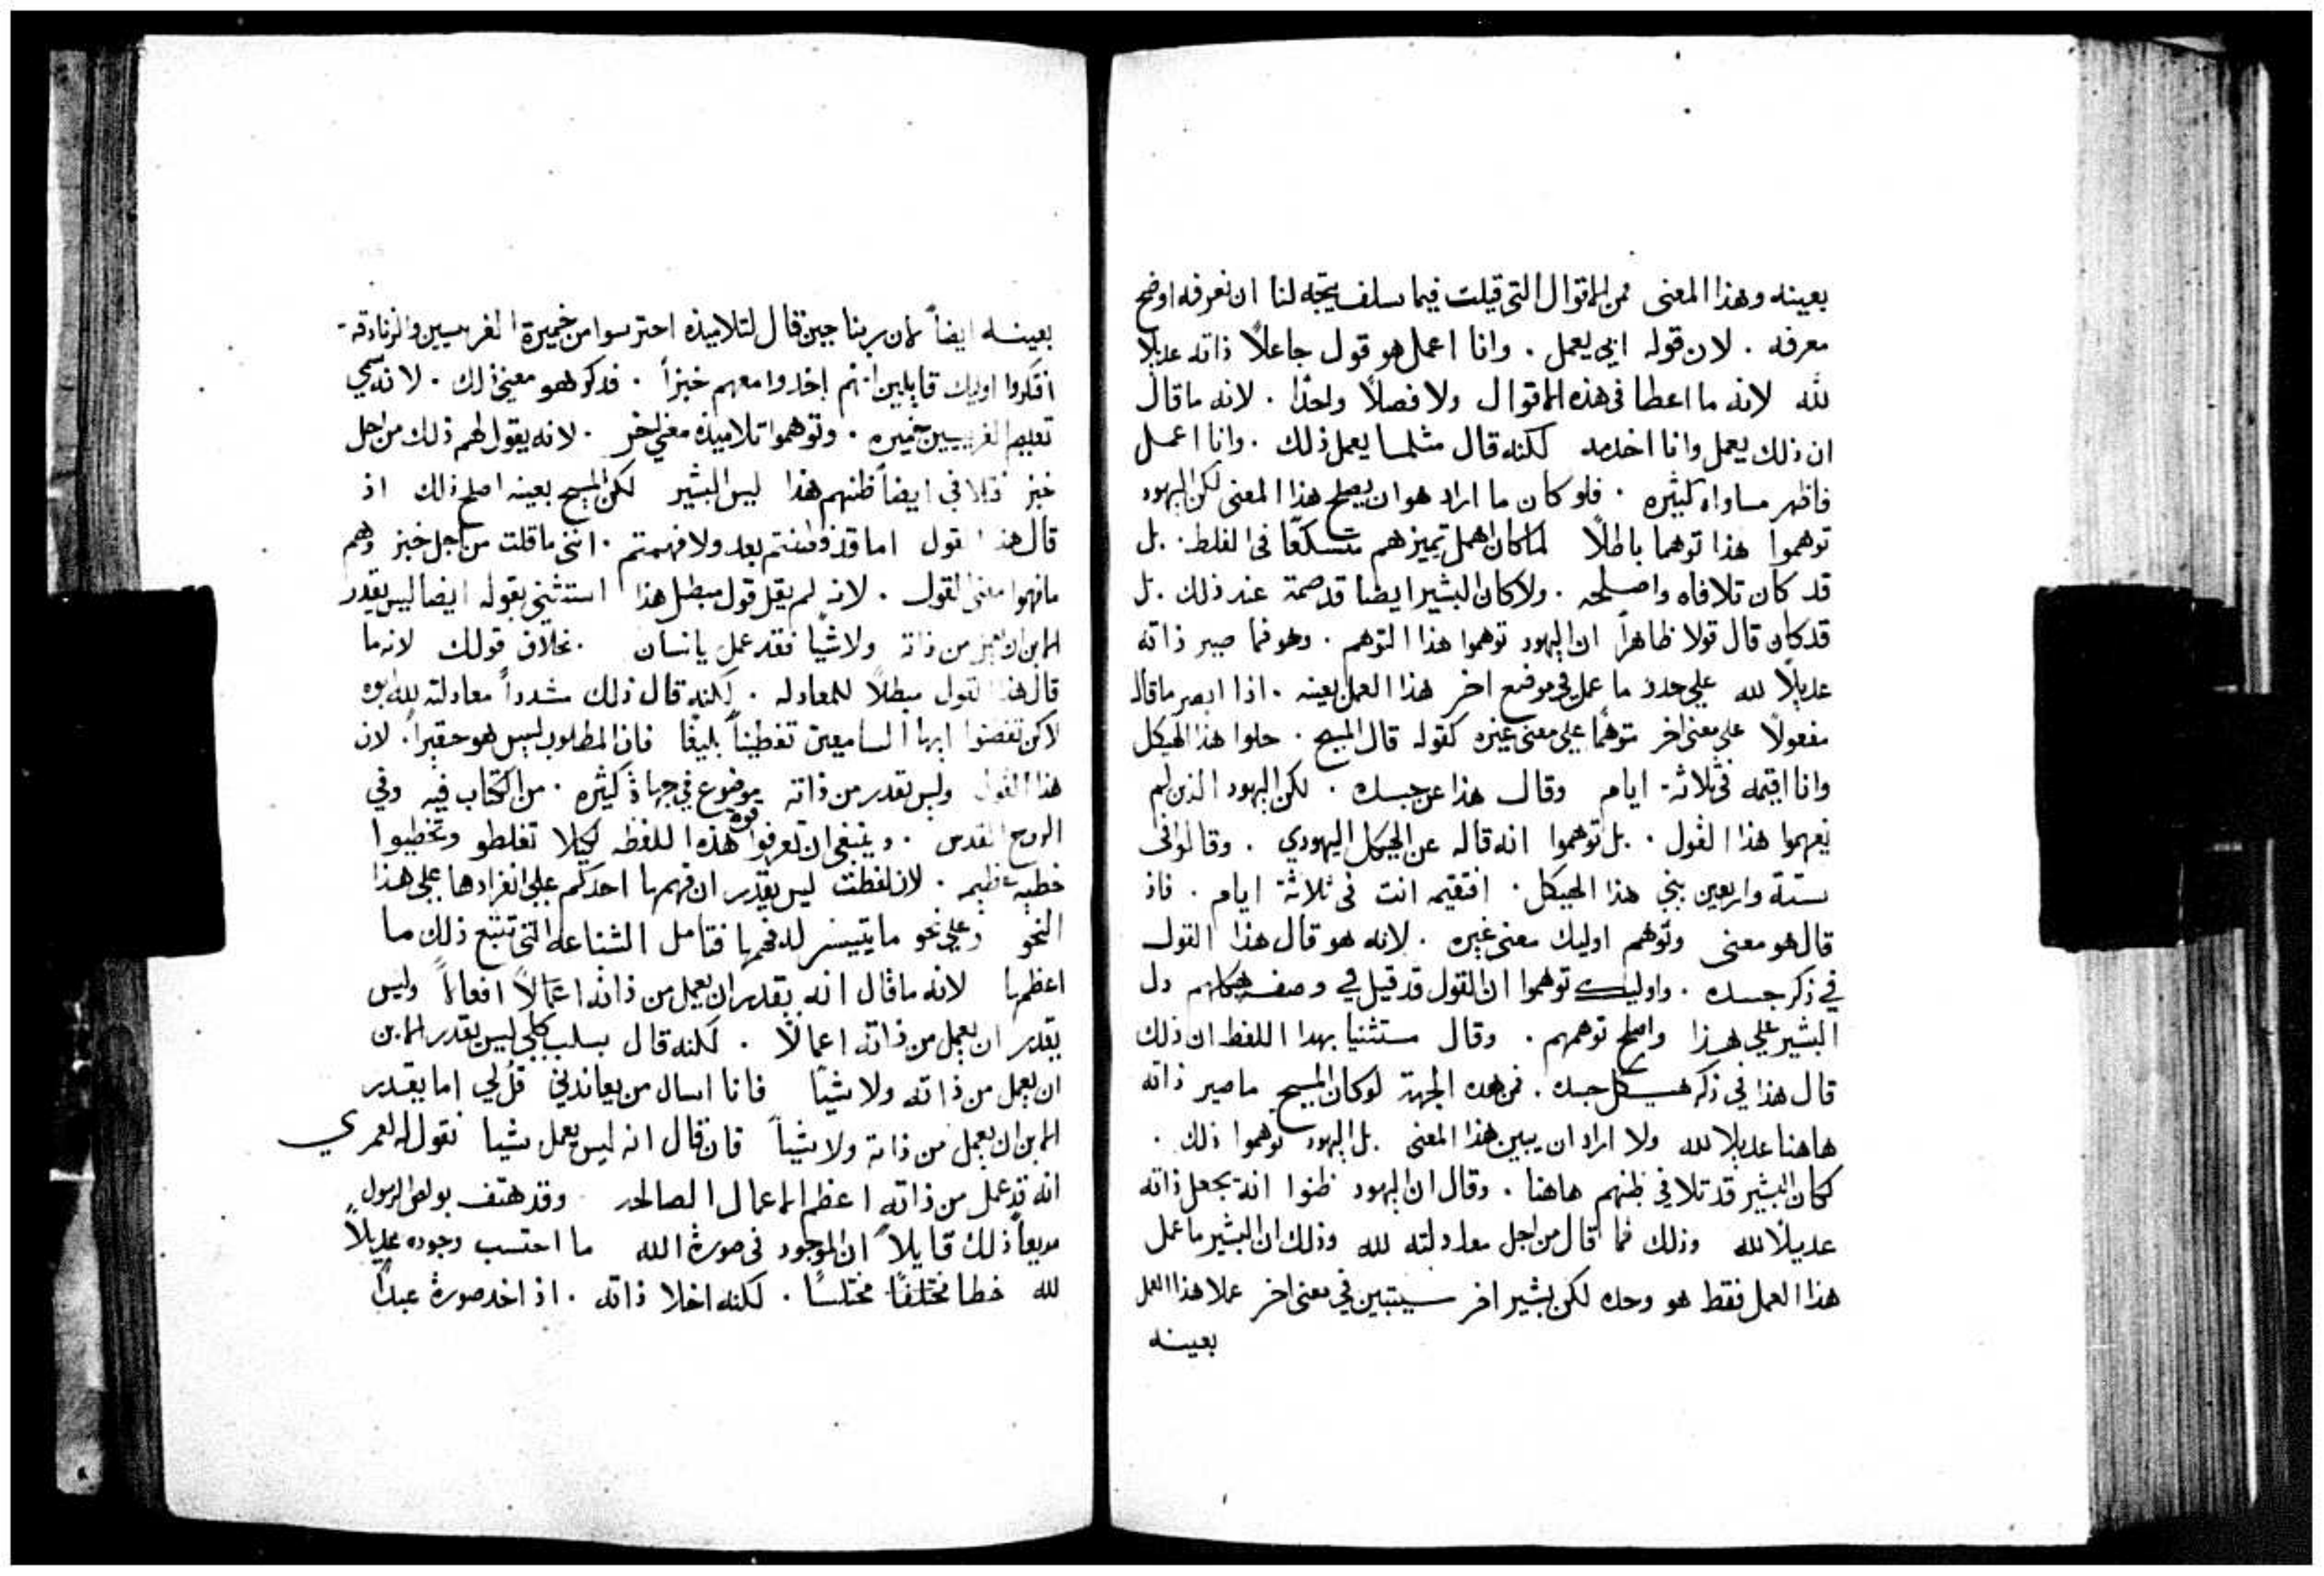 بعينه وهذا المعنى فمن الاقوال التي قيلت فيما سلف يتجه لنا ان نعرفه اوضح
معرفه . لان قوله ابي يعمل . وانا اعمل هو قول جاعلاً ذاته عديلا
لله لانه ما اعطا في هذه الاقوال ولا فصلاً واحدًا . لانه ما قال
ان ذلك يعمل وانا اخدمه لكنه قال مثلما يعمل ذلك . وانا اعمل
فاظهر مساواه كثيره . فلو كان ما اراد هو ان يصلح هذا المعنى لكن اليهود
توهموا هذا توهما باطلاً لما كان اهمل تميزهم متسكعًا في الغلط . بل
قد كان تلافاه واصلحه . ولا كان البشير ايضا قد صمت عند ذلك . بل
قد كان قال قولا ظاهراً ان اليهود توهموا هذا التوهم . وهو فما صير ذاته
عديلاً لله علي حدو ما عمل في موضع اخر هذا العمل بعينه . اذا ابصر ما قاله
مفعولاً علي معنى اخر متوهمًا علي معنى غيره كقوله قال المسيح . حلوا هذا الهيكل
وانا اقيمه في ثلاثة ايام وقال هذا عن جسده . لكن اليهود الذين لم
يفهموا هذا القول . بل توهموا انه قاله عن الهيكل اليهودي . وقالوا في
ستة واربعين بني هذا الهيكل . افتقيمه انت في ثلاثة ايام . فاذ
قال هو معنى وتوهم اوليك معنى غيره . لانه هو قال هذا القول
في ذكر جسده . واوليك توهموا ان القول قد قيل في وصف هيكلهم دل
البشير علي هذا واصلح توهمهم . وقال مستثنيا بهدا اللفظ ان ذلك
قال هذا في ذكر هيكل جسده . فمن هده الجهة لو كان المسيح ما صير ذاته
هاهنا عديلا لله ولا اراد ان يبين هذا المعنى بل اليهود توهموا ذلك .
لكان البشير قد تلافي ظنهم هاهنا . وقال ان اليهود ظنوا انه يجعل ذاته
عديلاً لله وذلك فما قال من اجل معادلته لله وذلك ان البشير ما عمل
هذا العمل فقط هو وحده لكن بشير اخر سيتبين في معنى اخر عملا هذا العمل
بعينه
بعينه ايضاً لان ربنا حين قال لتلاميذه احترسوا من خميرة الفريسيين والزنادقة
افتكروا اوليك قايلين انهم اخدوا معهم خبزاً . فدكر هو معنى ذلك . لانه سمي
تعليم الفريسيين خميره . وتوهموا تلاميذه معني اخر . لانه يقول لهم ذلك من اجل
خبز فتلافي ايضاً ظنهم هذا ليس البشير لكن المسيح بعينه اصلح ذلك اذ
قال هذا القول اما قد فطنتم بعد ولا فهمتم . انني ما قلت من اجل خبز وهم
ما فهموا معنى القول . لانه لم يقل قول مبطل هذا استثني بقوله ايضا ليس يقدر
الابن ان يعمل من ذاته ولا شيًا فقد عمل يا انسان . بخلاف قولك لانه ما
قال هذا القول مبطلاً للمعادله . لكنه قال ذلك مشدداً معادلته لله ابوه
لاكن تفطنوا ايها السامعين تفطيناً بليغًا فان المطلوب ليس هو حقيراً . لان
هذا القول وليس تقدر من ذاته موضوع في جهاة كثيره . من الكتاب فيه وفي
الروح القدس . وينبغي ان تعرفوا قوة هذه اللفظه لكيلا تغلطو وتخطيوا
خطيه عظيمه . لان لفظت ليس يقدر ان فهمها احدكم علي انفرادها علي هذا
النحو وعلي نحو ما يتيسر له فهمها فتامل الشناعه التي تتبع ذلك ما
اعظمها لانه ما قال انه يقدر ان يعمل من ذاته اعمالاً افعالاً وليس
يقدر ان يعمل من ذاته اعمالاً . لكنه قال بسلب كلي ليس يقدر الابن
ان يعمل من ذاته ولا شيًا فانا اسال من يعاندني قل لي اما يقدر
الابن ان يعمل من ذاته ولا شيًا فان قال انه ليس يعمل شيا نقول له لعمري
انه قد عمل من ذاته اعظم الاعمال الصالحه وقد هتف بولص الرسول
مريعاً ذلك قايلاً ان الموجود في صورة الله ما احتسب وجوده عديلاً
لله خطا مختلفًا مختلسًا . لكنه اخلا ذاته . اذ اخد صورة عبدًا